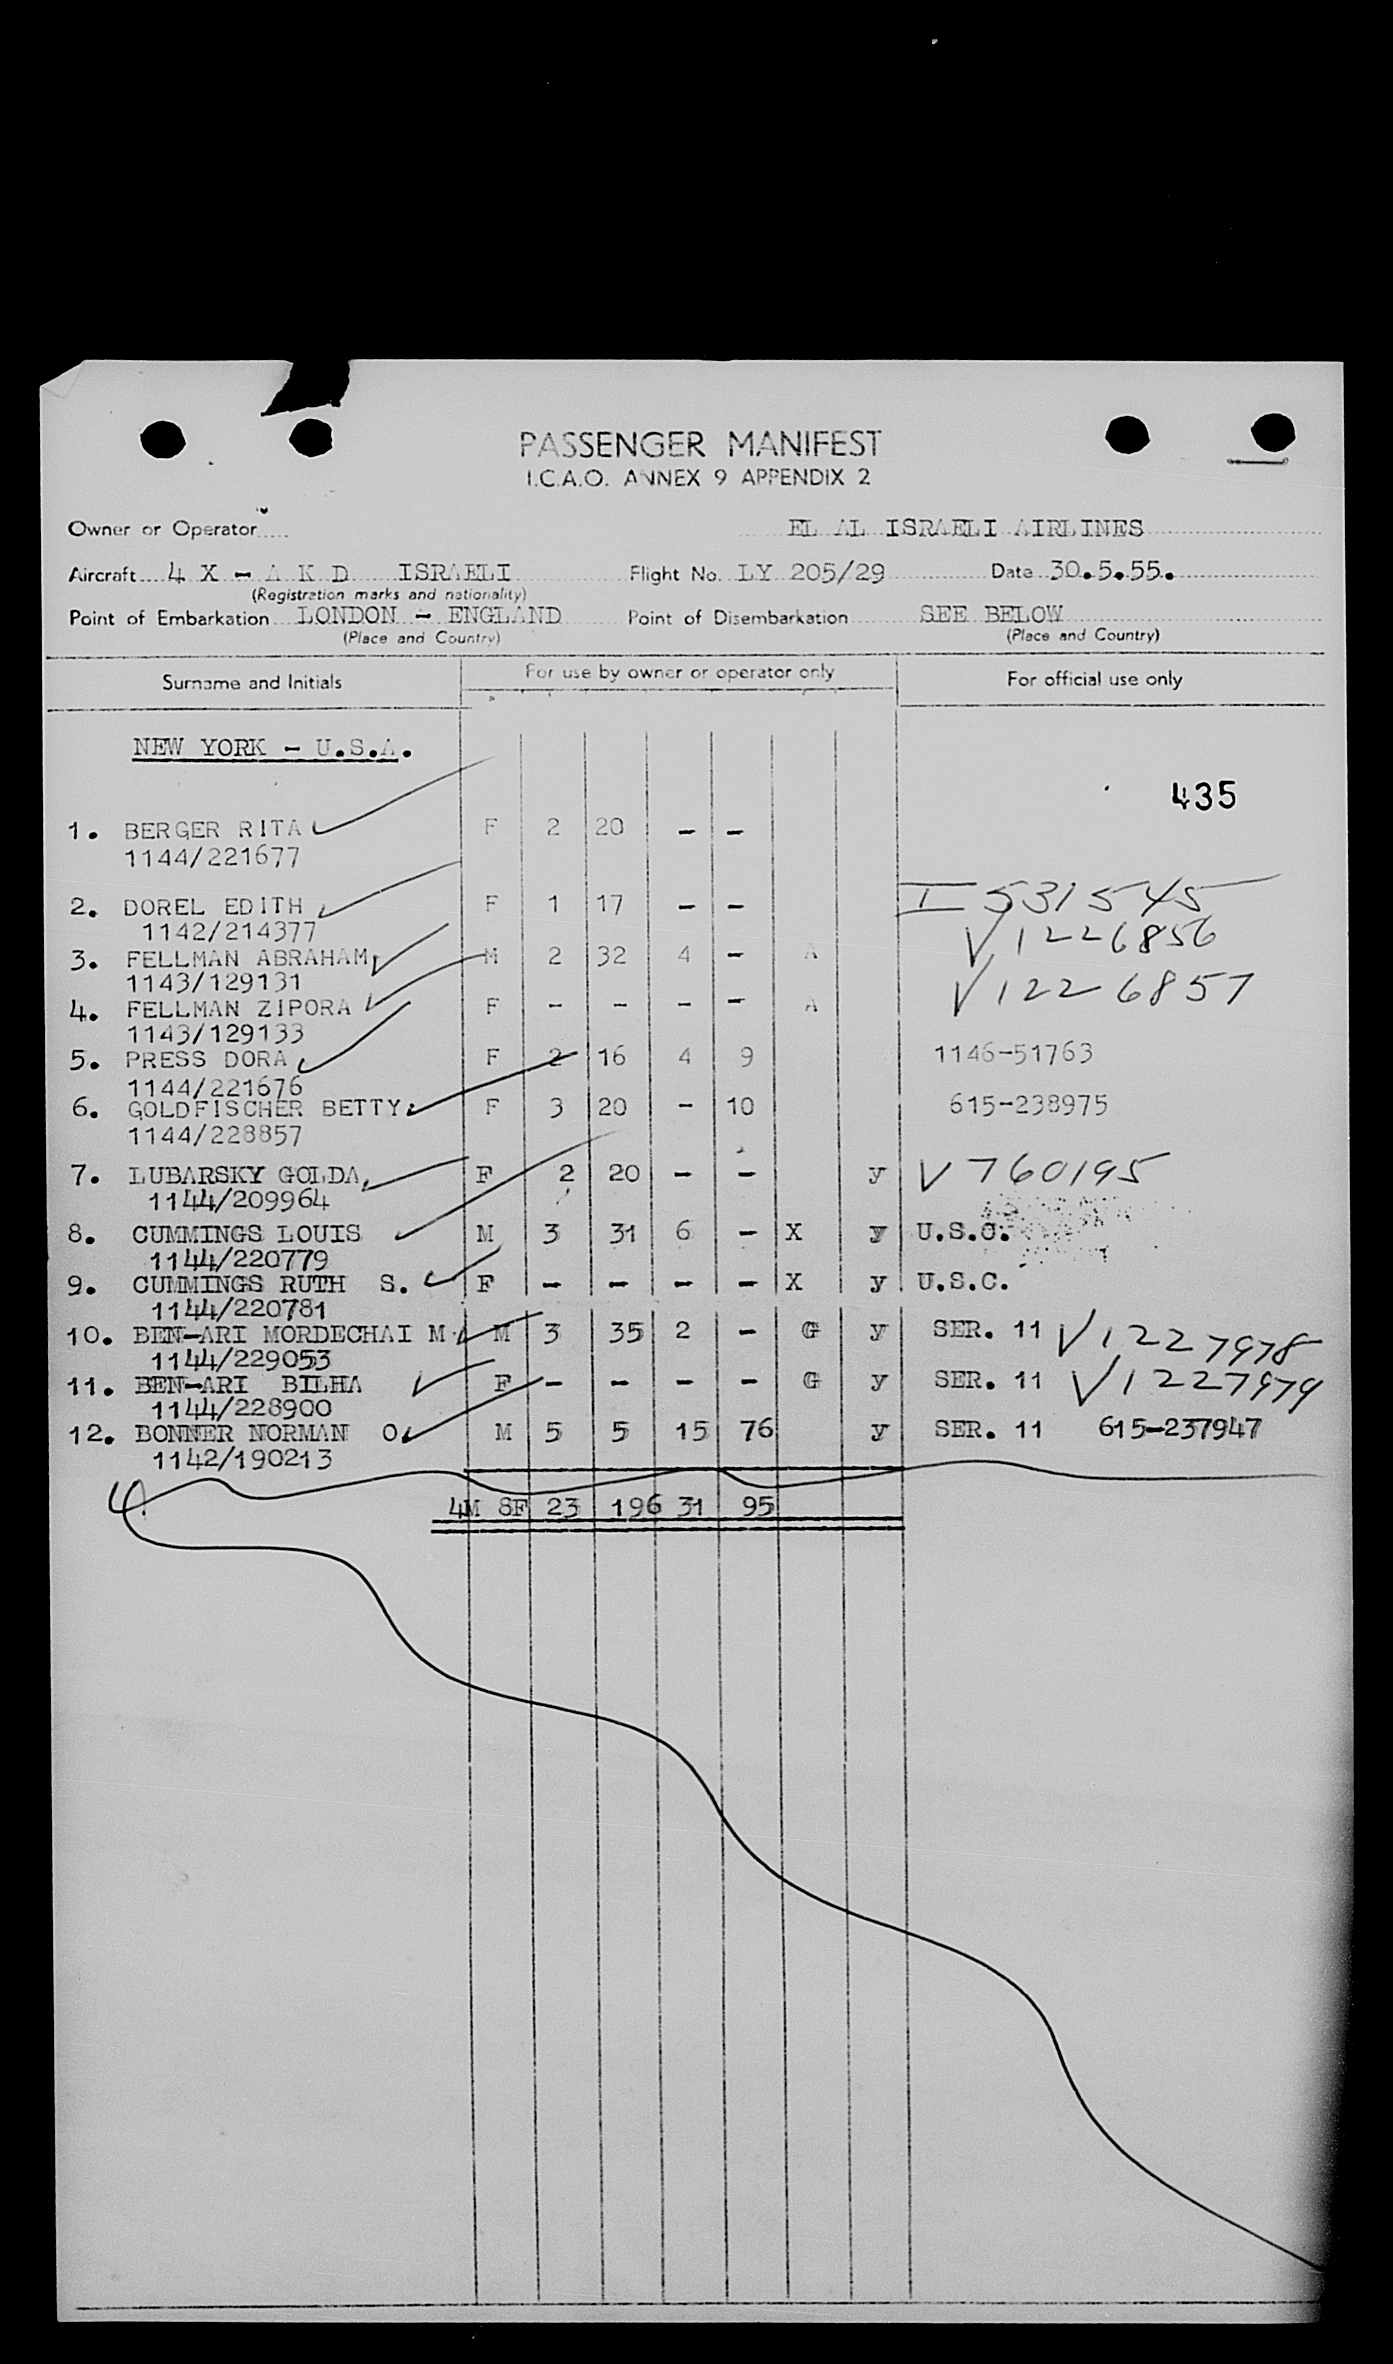 PASSENGER MANIFEST
I.C.A.O. ANNEX 9 APPENDIX 2
Owner or Operator EL AL ISRAELI AIRLINES
Aircraft 4 X - A K D ISRAELI Flight No. LY 205/29 Date 30.5.55.
(Registration marks and nationality)
Point of Embarkation LONDON - ENGLAND Point of Disembarkation SEE BELOW
(Place and Country) (Place and Country)
Surname and Initials For use by owner or operator only For official use only
NEW YORK - U.S.A.
435
1. BERGER RITA F 2 20 - -
1144/221677
2. DOREL EDITH F 1 17 - - I 531545
1142/214377 V1226856
3. FELLMAN ABRAHAM, M 2 32 4 - A
1143/129131 V1226857
4. FELLMAN ZIPORA F - - - - A
1143/129133
5. PRESS DORA F 2 16 4 9 1146-51763
1144/221676
6. GOLDFISCHER BETTY. F 3 20 - 10 615-238975
1144/228857
7. LUBARSKY GOLDA, F 2 20 - - y V760195
1144/209964
8. CUMMINGS LOUIS M 3 31 6 - X y U.S.C.
1144/220779
9. CUMMINGS RUTH S. F - - - - X y U.S.C.
1144/220781
10. BEN-ARI MORDECHAI M. M 3 35 2 - G y SER. 11 V1227978
1144/229053
11. BEN-ARI BILHA F - - - - G y SER. 11 V1227979
1144/228900
12. BONNER NORMAN O. M 5 5 15 76 y SER. 11 615-237947
1142/190213
4M 8F 23 196 31 95